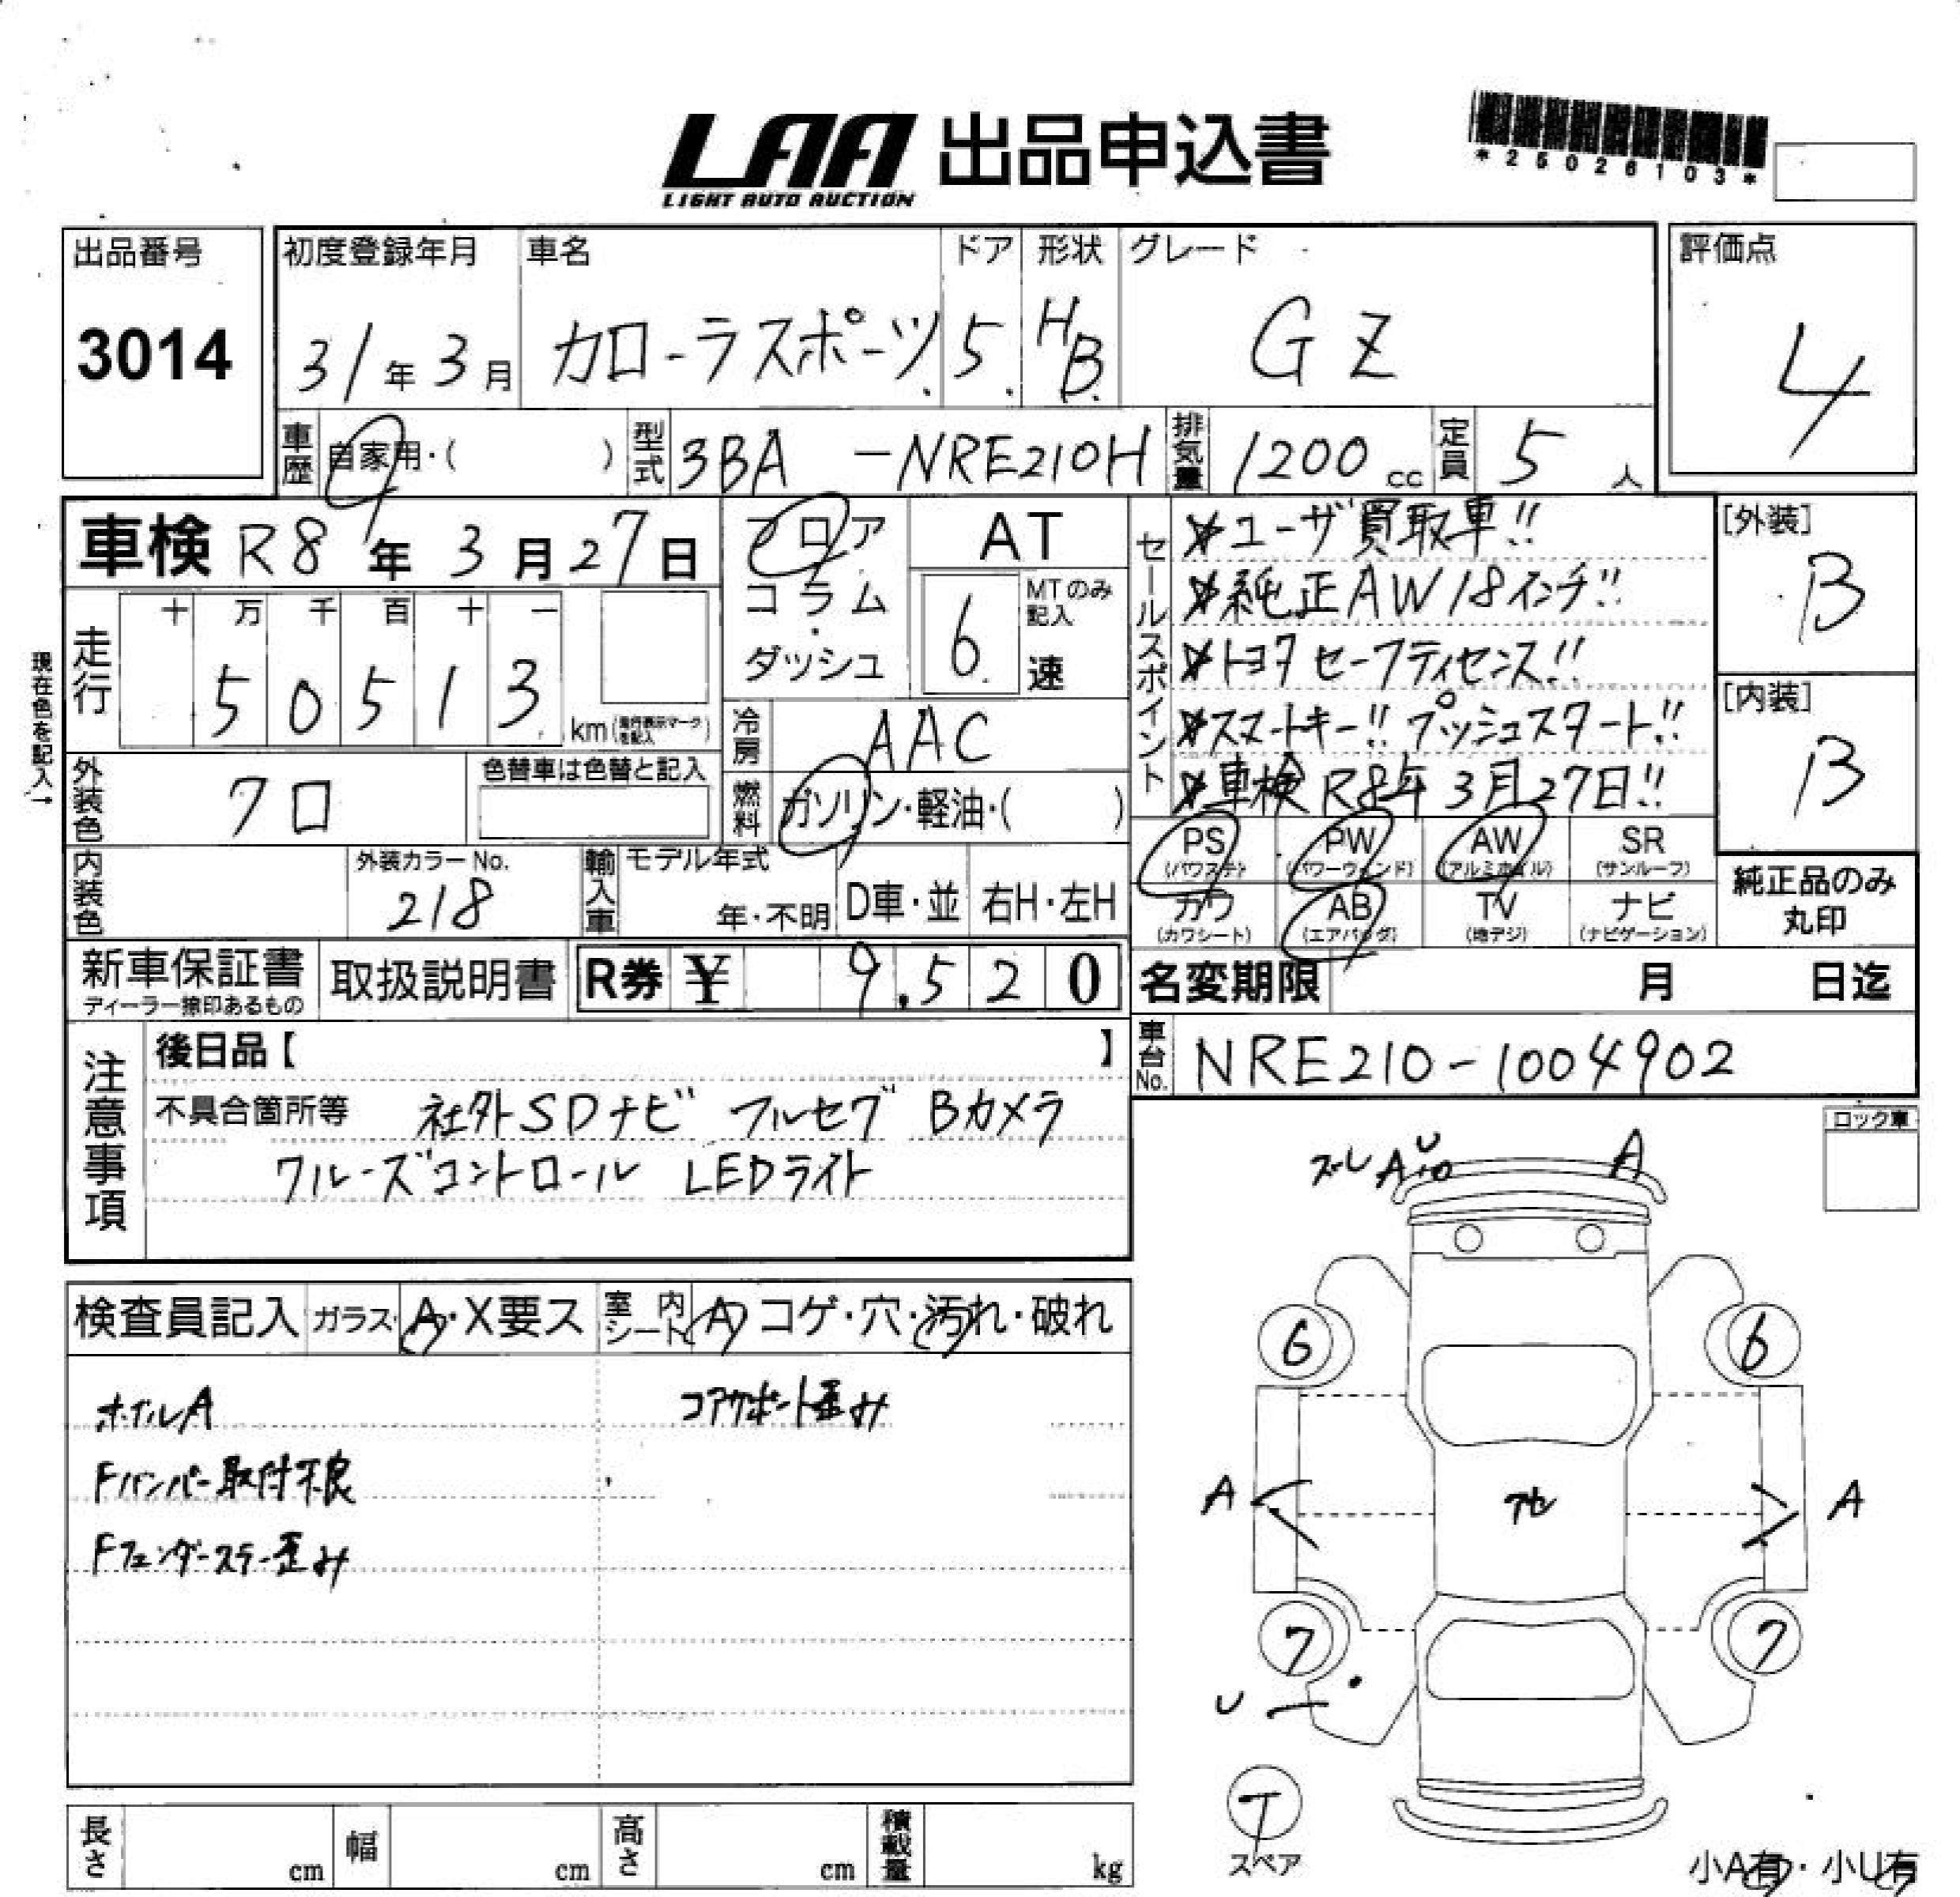 LAA 出品申込書
LIGHT AUTO AUCTION
*25026103*
出品番号
3014
初度登録年月
31年3月
車名
カローラスポーツ
ドア
5
形状
HB
グレード
GZ
評価点
4
車歴 自家用・( )
型式 3BA -NRE210H
排気量 1200 cc
定員 5 人
車検 R8年3月27日
フロア
コラム
・
ダッシュ
AT
6 速
MTのみ記入
セールスポイント
ユーザ買取車!!
純正AW18インチ!!
トヨタセーフティセンス!!
スマートキー!! プッシュスタート!!
車検R8年3月27日!!
[外装]
B
[内装]
B
現在色を記入→
走行
十 万 千 百 十 一
5 0 5 1 3
km(走行表示マークを記入)
冷房 AAC
外装色 クロ
色替車は色替と記入
燃料 ガソリン・軽油・( )
内装色
外装カラーNo.
218
輸入車
モデル年式
年・不明
D車・並
右H・左H
PS (パワステ)
PW (パワーウィンド)
AW (アルミホイル)
SR (サンルーフ)
カワ (カワシート)
AB (エアバッグ)
TV (地デジ)
ナビ (ナビゲーション)
純正品のみ
丸印
新車保証書
ディーラー捺印あるもの
取扱説明書
R券 ¥ 9,520
名変期限 月 日迄
車台No. NRE210-1004902
注意事項
後日品【 】
不具合箇所等 社外SDナビ フルセグ Bカメラ
クルーズコントロール LEDライト
ロック車
ズレ A U
A
検査員記入 ガラス A・X要ス 室内シート A コゲ・穴・汚れ・破れ
ホイルA
コアサポート歪み
Fバンパー取付不良
Fフェンダーステー歪み
6
6
A
A
7
7
U
T
スペア
長さ cm
幅 cm
高さ cm
積載量 kg
小A有・小U有